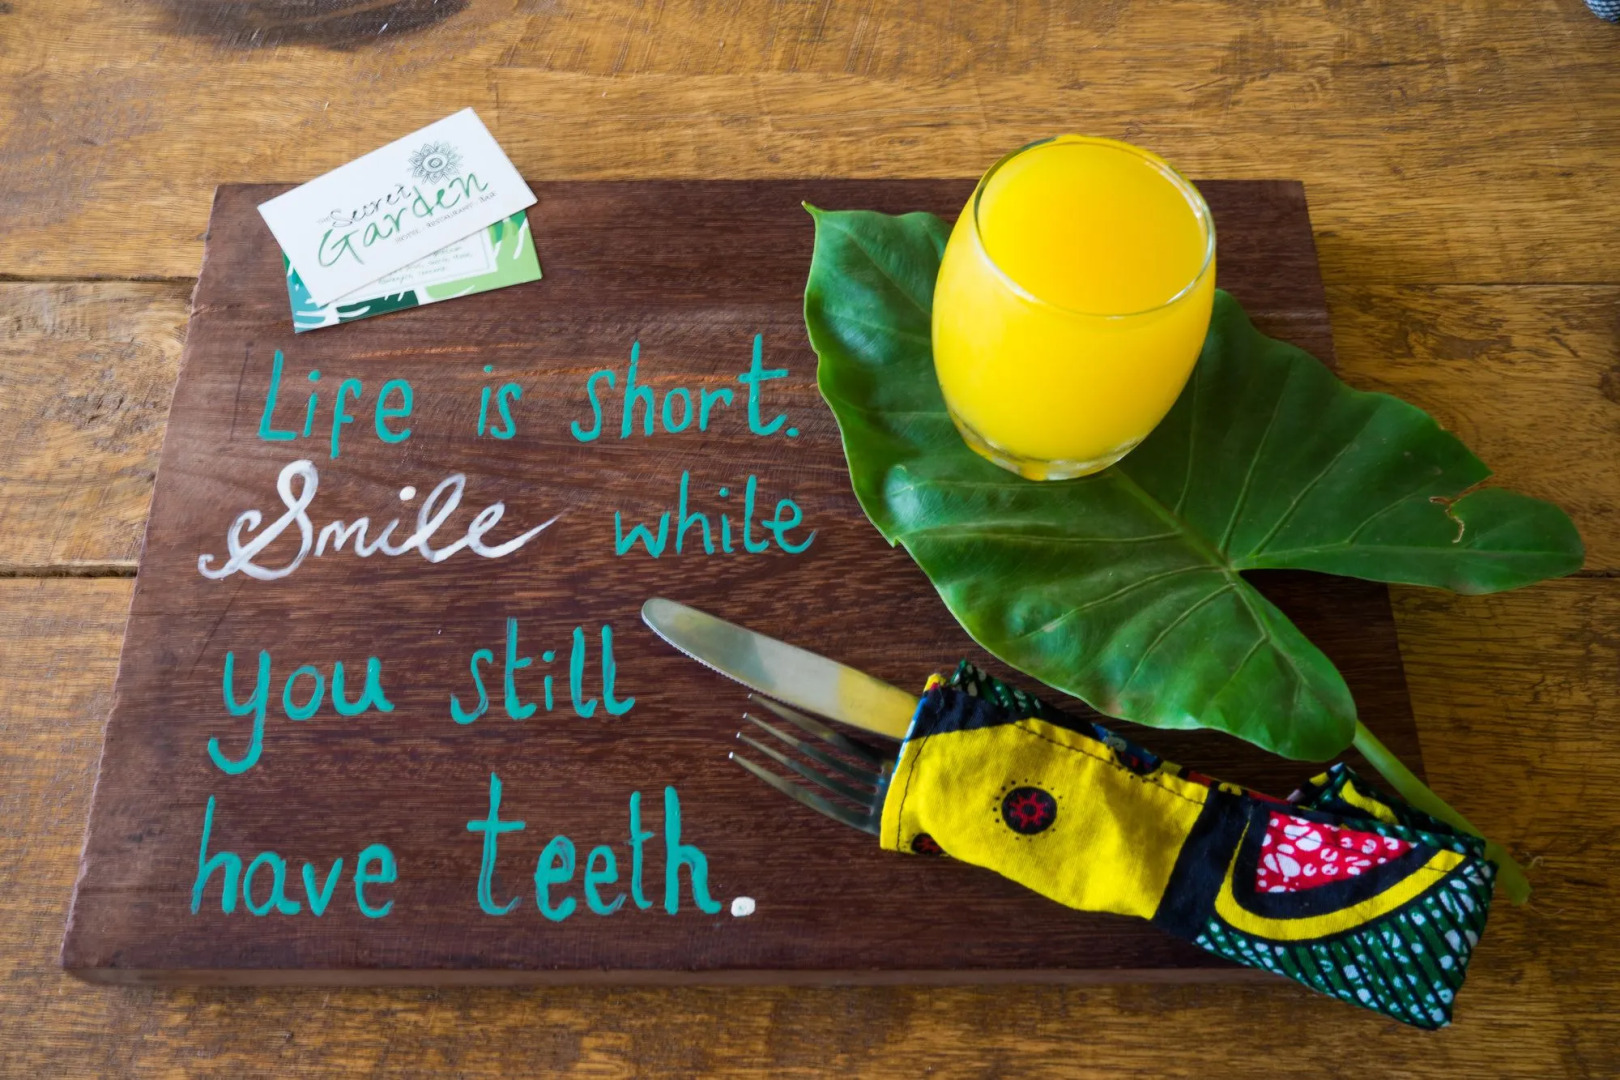 The
Secret
Garden
HOSTEL • RESTAURANT • BAR
Life is short.
Smile while
you still
have teeth.